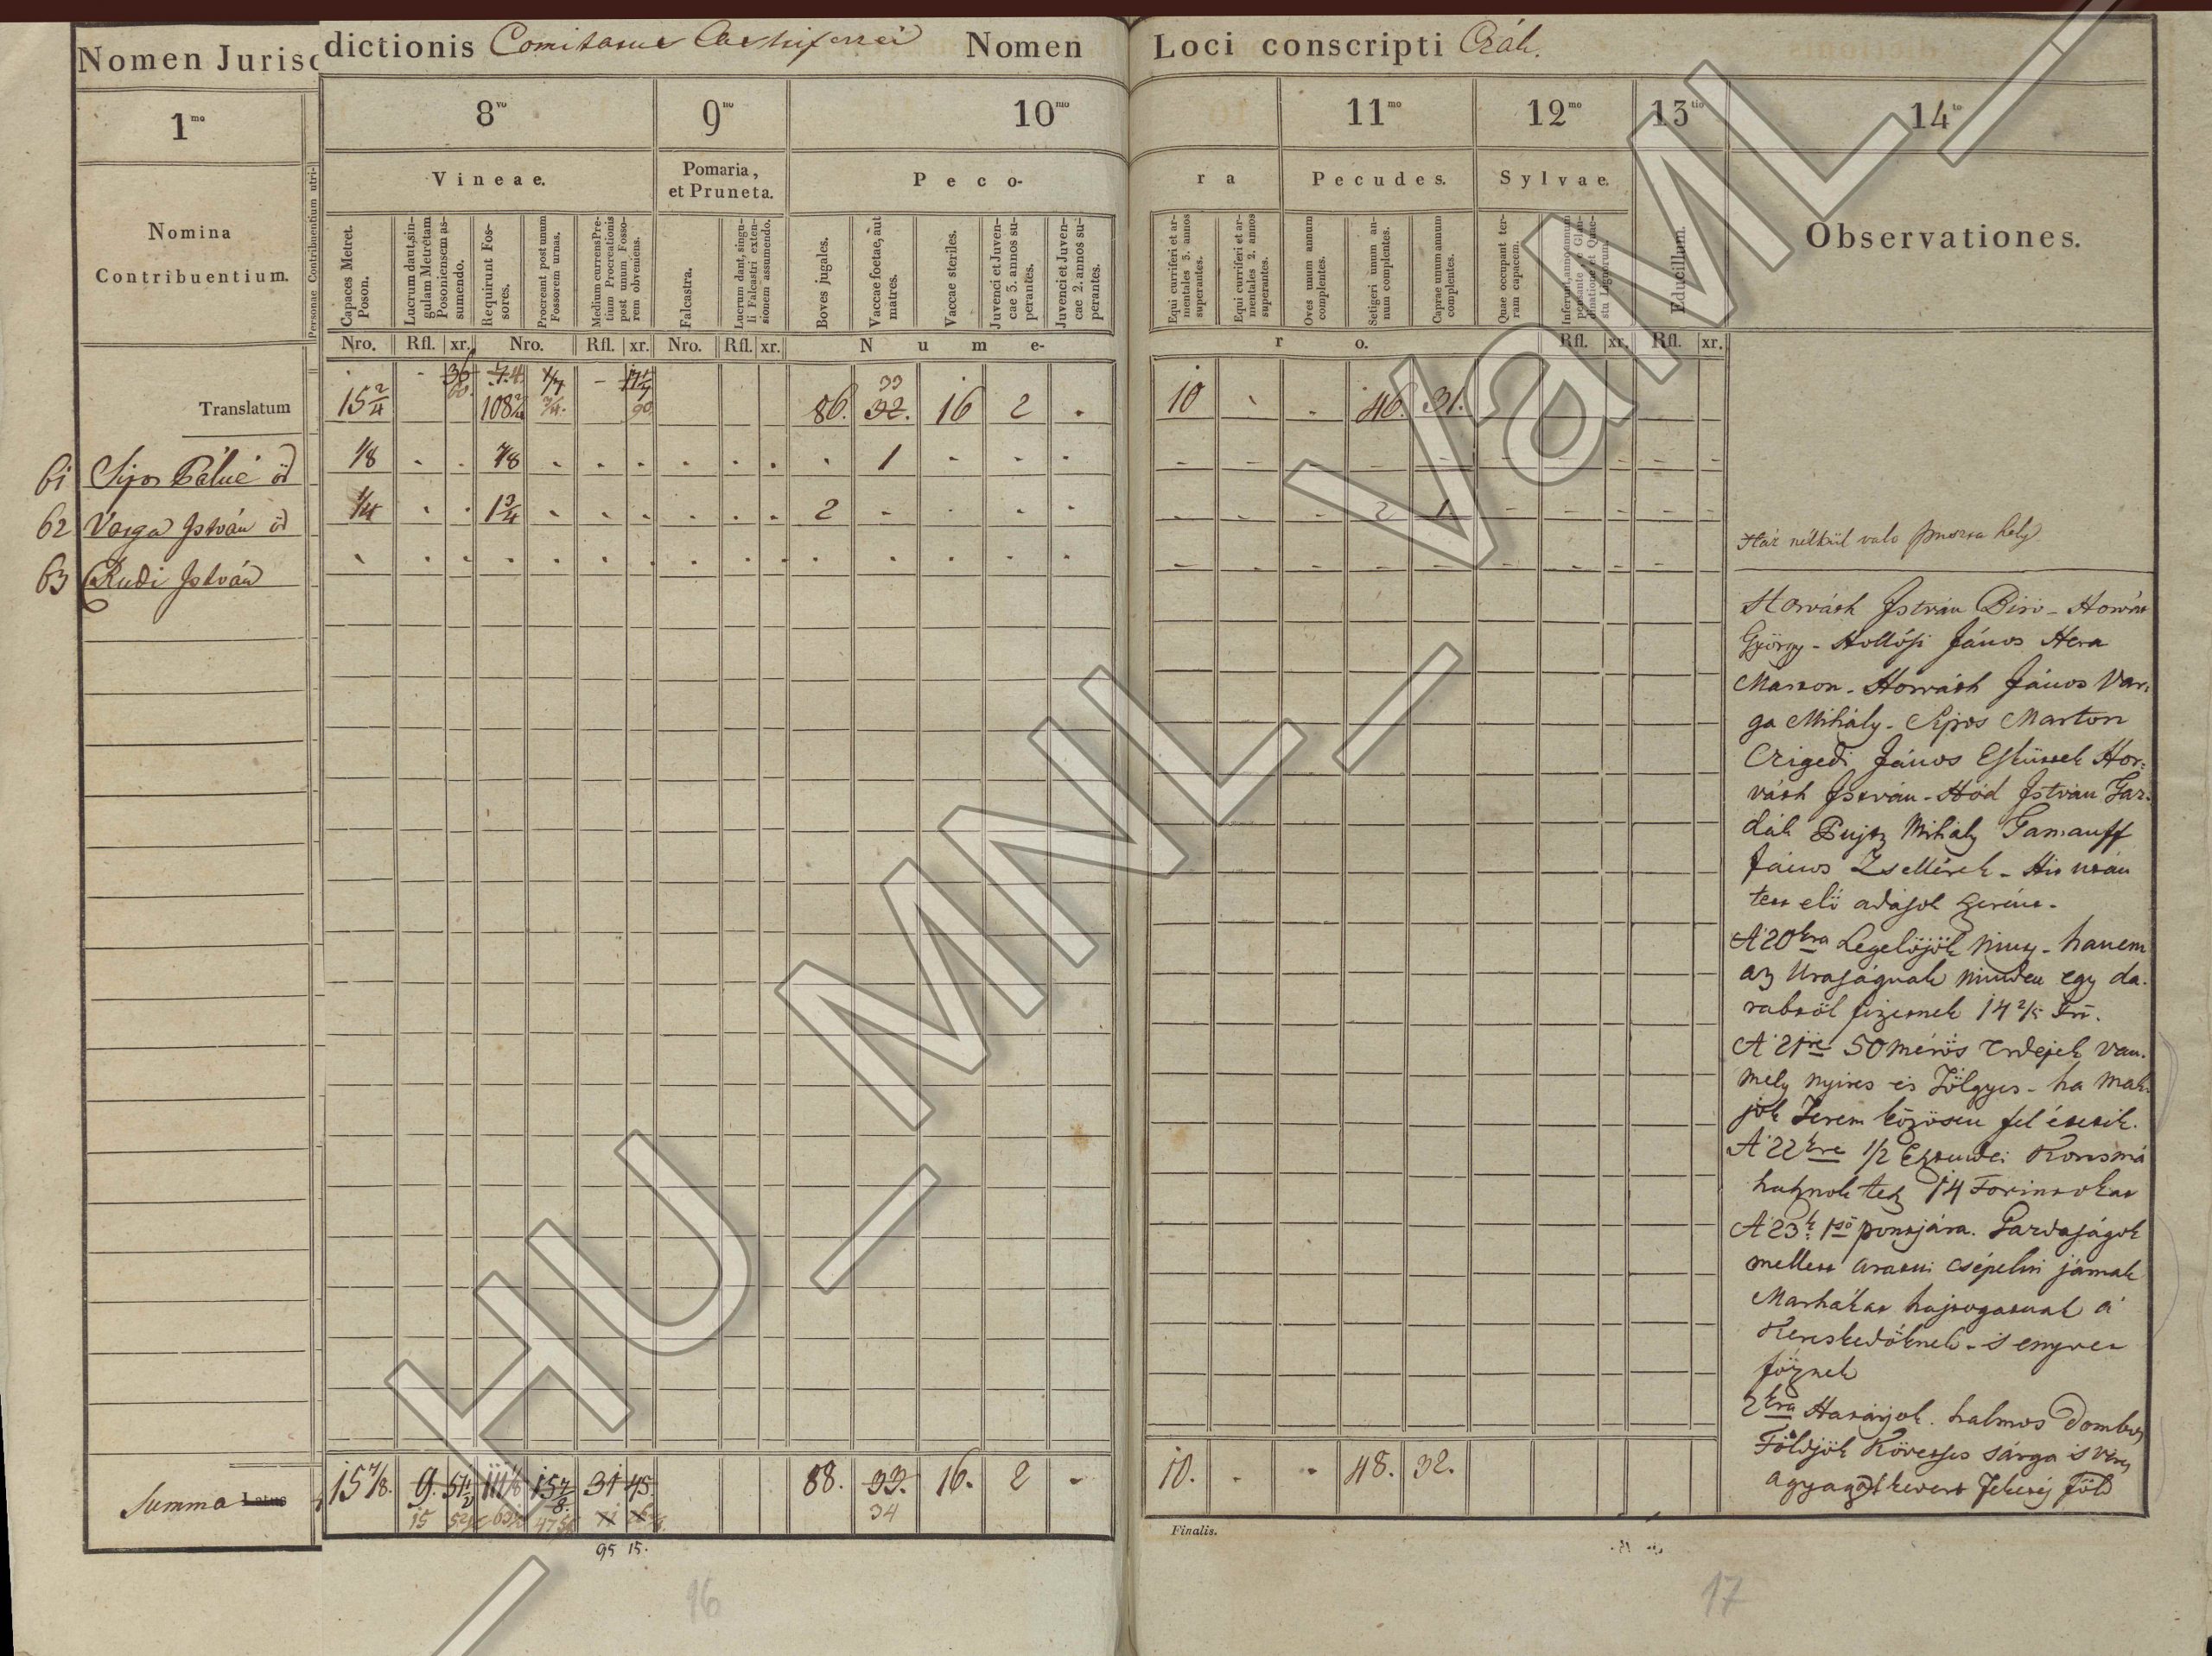 Nomen Jurisdictionis Comitatus Castriferrei Nomen Loci conscripti Czák.
1mo 8vo 9no 10mo 11mo 12mo 13tio 14to
Nomina Contribuentium.
Personae Contribuentium utri-
Vineae.
Pomaria, et Pruneta.
Peco-
ra
Pecudes.
Sylvae.
Educillum.
Observationes.
Capaces Metret. Poson.
Lucrum daut, singulam Metretam Posoniensem assumendo.
Requirunt Fossores.
Procreant post unum Fossorem urnas.
Medium currens Pretium Procreationis post unum Fossorem obveniens.
Falcastra.
Lucrum dant, singuli Falcastri extensionem assumendo.
Boves jugales.
Vaccae foetae, aut matres.
Vaccae steriles.
Juvenci et Juvencae 3. annos superantes.
Juvenci et Juvencae 2. annos superantes.
Equi curriferi et armentales 3. annos superantes.
Equi curriferi et armentales 2. annos superantes.
Oves unum annum complentes.
Setigeri unum annum complentes.
Caprae unum annum complentes.
Quae occupant terram capacem.
Nro. Rfl. xr. Nro. Rfl. xr. Nro. Rfl. xr. N u m e-
r o. Rfl. xr. Rfl. xr.
Translatum 15 2/4 108 2/4 3/4. 90 86. 32. 33 16 2 10 46. 31.
61 Sipos Pálné öd 1/8 7/8 1
62 Varga István öd 1/4 1 3/4 2 2 1
63 Rudi István
Ház nélkül való puszta hely
Horváth István Biró - Horváth
György - Hollósi János Hera
Marton - Horváth János Var-
ga Mihály - Sipos Marton
Czigedi János Esküttek Hor-
váth István - Hód István Gaz-
dák Mihály Gamauff
János Zsellérek - Hit után
tett elő adások szerint -
A' 20kra Legelőjök nincs - hanem
az Uraságnak minden egy da-
rabtól fizetnek 14 2/5 
A' 21re 50 mérős Erdejek van.
mely nyires és Tölgyes - ha mak-
jok Terem közösen fel étetik.
A' 22kre 1/2 Esztendei Korcsma
hasznok tesz 14 Forintokat
A' 23k 1ső pontjára. Gazdaságok
mellett aratni csépelni járnak
Marhákat hajtogatnak a'
Kereskedőknek - s enyvet
főznek
2kra Határjok. halmos Dombos
Földjök Követses sárga is veres
agyaggal kevert fekete föld
Summa Latus 15 7/8. 9. 51 1/2 111 1/8 15 7/8. 31 45. 88. 33. 16. 2 10. 48. 32.
15 34
95 15.
Finalis.
16
17
HU_MNL_VaML_